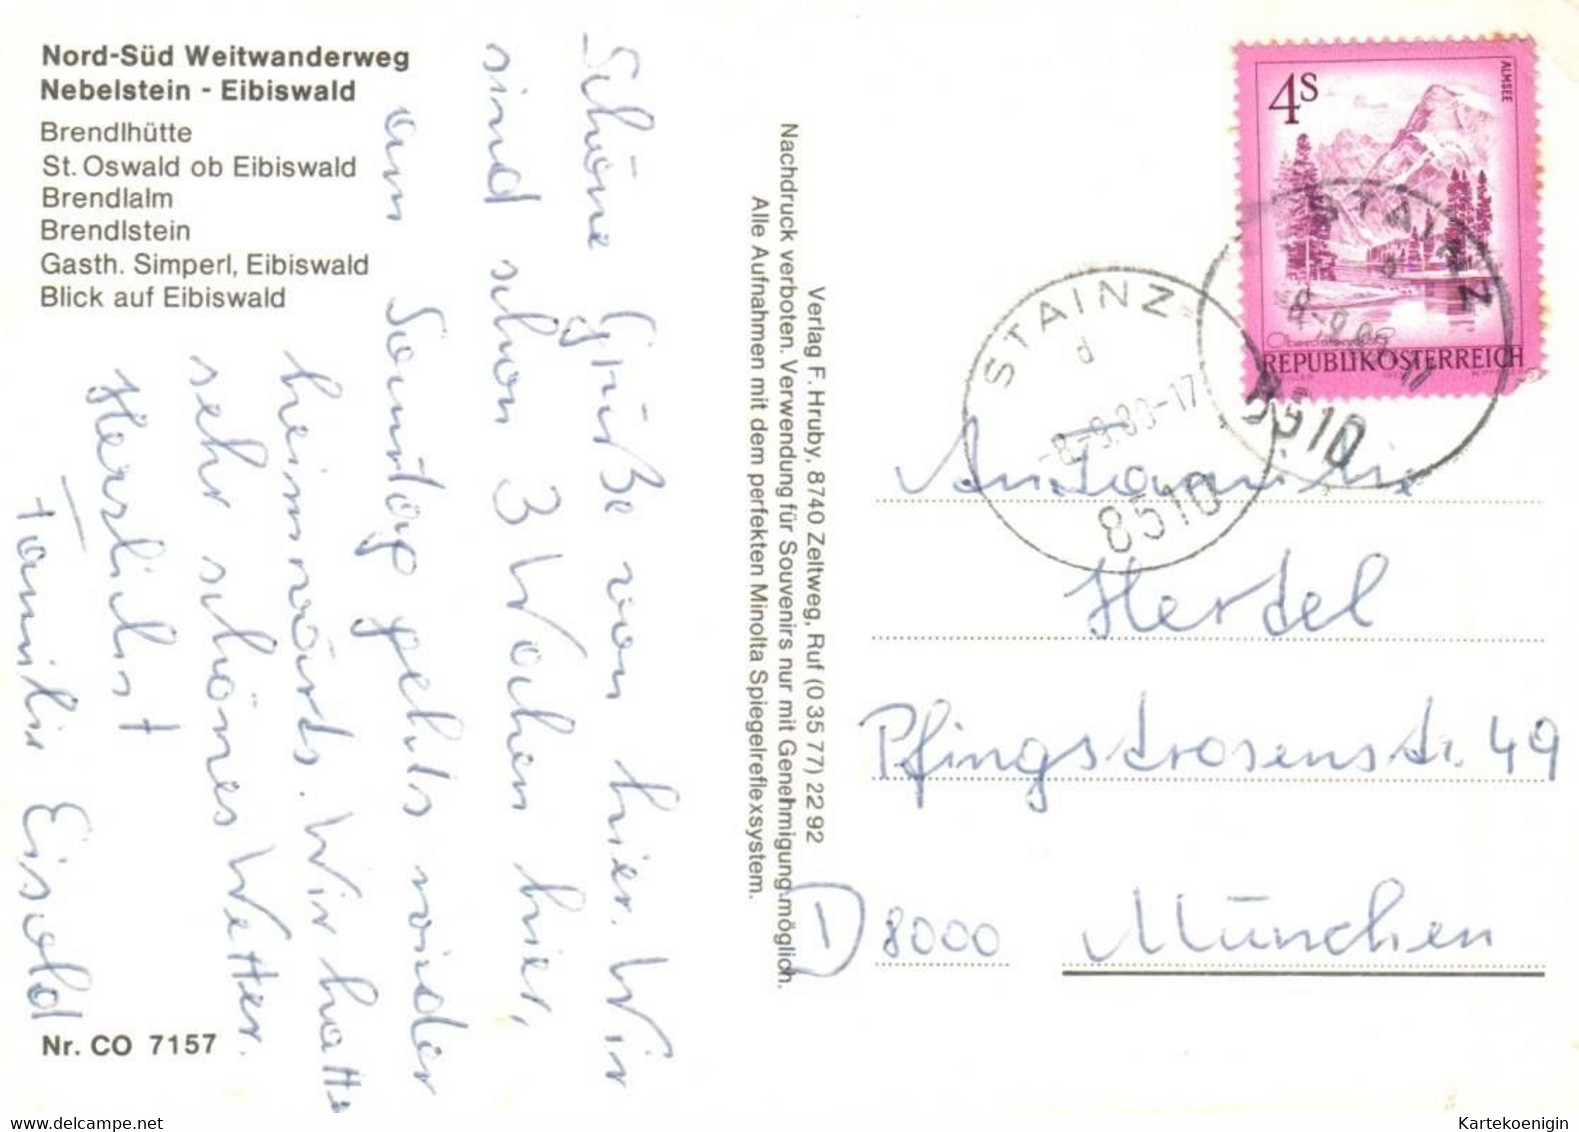 Nord-Süd Weitwanderweg
Nebelstein - Eibiswald
Brendlhütte
St. Oswald ob Eibiswald
Brendlalm
Brendlstein
Gasth. Simperl, Eibiswald
Blick auf Eibiswald
Schöne Grüße von hier. Wir
sind schon 3 Wochen hier,
am Samstag gehts wieder
heimwärts. Wir hatten
sehr schönes Wetter.
Herzlichst
Familie Eisold
Nr. CO 7157
Verlag F. Hruby, 8740 Zeltweg, Ruf (0 35 77) 22 92
Nachdruck verboten. Verwendung für Souvenirs nur mit Genehmigung möglich.
Alle Aufnahmen mit dem perfekten Minolta Spiegelreflexsystem.
4S
ALMSEE
REPUBLIK ÖSTERREICH
STAINZ
d
-8.-9.80-17
8510
STAINZ
8510
Hertel
Pfingstrosenstr. 49
D 8000 München
delcampe.net
Kartekoenigin